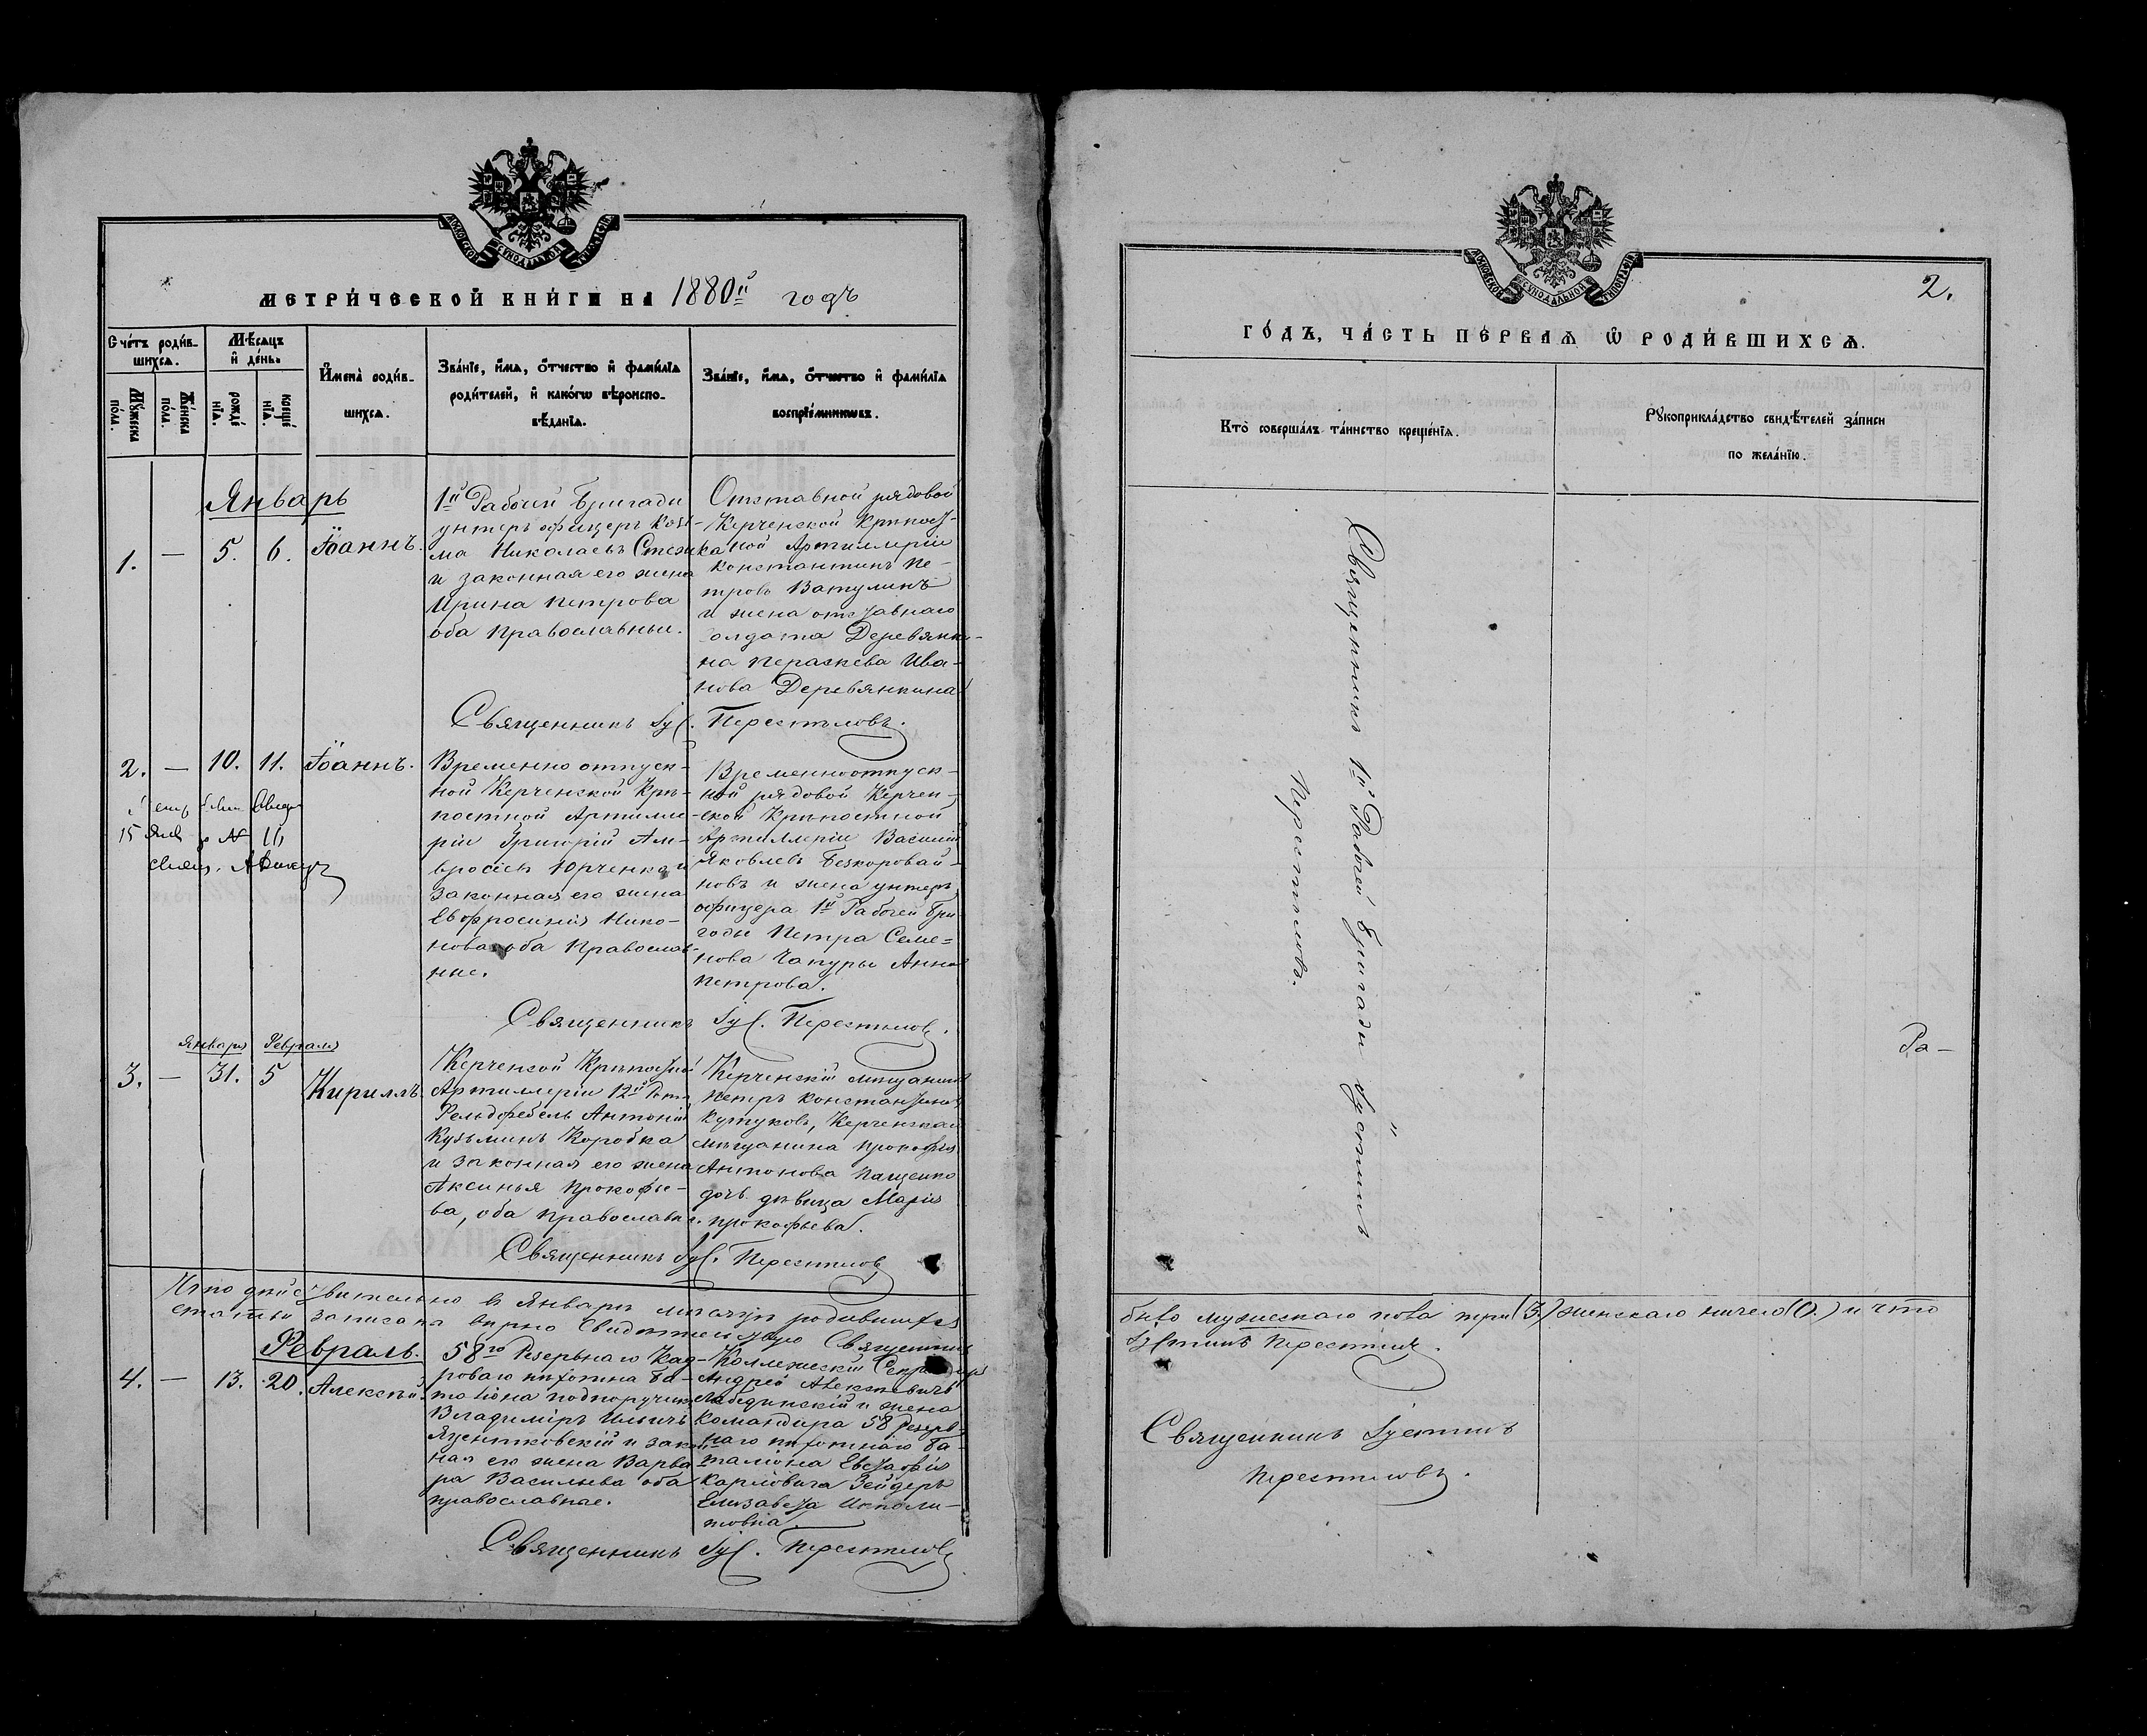 МОСКОВСКОЙ СѴНОДАЛЬНОЙ ТИПОГРАФІИ
МЕТРИ́ЧЕСКОЙ КНИ́ГИ НА 1880й годъ
Сче́тъ роди́в-
шихсѧ.
Мѣ́сѧцъ
и҆ де́нь.
Мꙋ́жеска
по́ла.
Же́нска
по́ла.
рожде́
нїѧ.
креще́
нїѧ.
И҆мена̀ роди́в-
шихсѧ.
Зва́нїе, и҆́мѧ, ѻ҆́тчество и҆ фами́лїѧ
роди́телей, и҆ како́гѡ вѣроиспо-
вѣ́данїѧ.
Зва́нїе, и҆́мѧ, ѻ҆́тчество и҆ фами́лїѧ
воспрїе́мникѡвъ.
Январь
1. — 5. 6. Іоаннъ.
1й Рабочей Бригады
унтеръ офицеръ Козь-
ма Николаевъ
и законная его жена
Ирина Петрова
оба Православныи.
Отставной рядовой
Керченской Крѣпост-
ной Артиллеріи
Константинъ Пе-
тровъ Ватулинъ
и жена отставнаго
солдата Деревянки-
на Параскева Ива-
нова Деревянкина
Священникъ Іуст. Перестиловъ.
2. — 10. 11. Іоаннъ.
15 Янв
Временно отпуск-
ной Керченской Крѣ-
постной Артилле-
ріи Григорій Ам-
вросіевъ Юрченко и
законная его жена
Евфросинія Нико-
нова оба Православ-
ные.
Временноотпуск-
ной рядовой Керчен-
ской Крѣпостной
Артиллеріи Василій
Яковлевъ Безкоровай-
новъ и жена унтеръ
офицера 1й Рабочей Бри-
гады Петра Семе-
нова Чапуры Анна
Петрова.
Священникъ Іуст. Перестиловъ.
Января Февраля
3. — 31. 5 Кириллъ.
Керченской Крѣпостной
Артиллеріи 12й Роты
Фельдфебель Антоній
Кузьминъ Коробка
и законная его жена
Аксинья Прокофье-
ва, оба православн.
Керченскій мѣщанинъ
Петръ Константиновъ
Кутуковъ, Керченскаго
мѣщанина Прокофія
Антонова Пащенко
дочь дѣвица Марія
Прокофьева.
Священникъ Іуст. Перестиловъ
Что дѣйствительно въ Январѣ мѣсяцѣ родившихся
статьи записаны вѣрно Свидѣтельствую Священникъ
Февраль.
4. — 13. 20. Алексѣй.
58го Резервнаго Кад-
роваго пѣхотна ба-
таліона подпоручикъ
Владиміръ Ильичъ
Яцентковскій и закон-
ная его жена Варва-
ра Васильева оба
православные.
Коллежскій Секретарь
Андрей Алексѣевичъ
Лебединскій и жена
командира 58 Резерв-
наго пѣхотнаго ба-
таліона Евстафія
Карловича Зейдеръ
Елизавета Ипполи-
товна
Священникъ Іуст. Перестиловъ
МОСКОВСКОЙ СѴНОДАЛЬНОЙ ТИПОГРАФІИ
2.
ГО́ДЪ, ЧА́СТЬ ПЕ́РВАѦ Ѡ҆ РОДИ́ВШИХСѦ.
Кто̀ соверша́лъ та́инство креще́нїѧ.
Рꙋкоприкла́дство свидѣ́телей за́писи
по жела́нїю.
Священникъ 1й Рабочей Бригады Іустинъ
Перестиловъ.
Ра-
было мужескаго пола три (3.) женскаго ничего (0.) и что
Іустинъ Перестиловъ.
Священникъ Іустинъ
Перестиловъ.